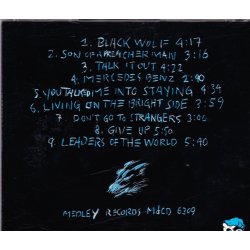 1. BLACK WOLF 4:17
2. SON OF A PREACHER MAN 3:15
3. TALK IT OUT 4:22
4. MERCEDES BENZ 2:40
5. YOU TALKED ME INTO STAYING 4:34
6. LIVING ON THE BRIGHT SIDE 3:59
7. DON'T GO TO STRANGERS 3:00
8. GIVE UP 5:50
9. LEADERS OF THE WORLD 5:40
MEDLEY RECORDS MdCD 6309